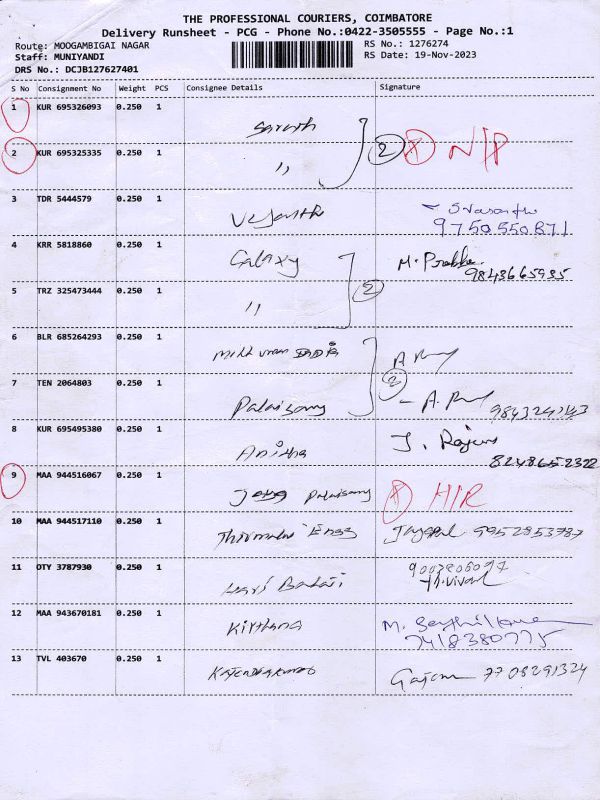 THE PROFESSIONAL COURIERS, COIMBATORE
Delivery Runsheet - PCG - Phone No.:0422-3505555 - Page No.:1
Route: MOOGAMBIGAI NAGAR RS No.: 1276274
Staff: MUNIYANDI RS Date: 19-Nov-2023
DRS No.: DCJB127627401
S No Consignment No Weight PCS Consignee Details Signature
1 KUR 695326093 0.250 1 Sarath
2 KUR 695325335 0.250 1 " 2 N/P
3 TDR 5444579 0.250 1
9750550871
4 KRR 5818860 0.250 1 Galaxy M. Prabhu
9843665935
5 TRZ 325473444 0.250 1 " 2
6 BLR 685264293 0.250 1
7 TEN 2064803 0.250 1 Palaisamy 2
8 KUR 695495380 0.250 1 Anitha
8248652322
9 MAA 944516067 0.250 1 Palaisamy
10 MAA 944517110 0.250 1 Thirumalai Engg 9952853787
11 OTY 3787930 0.250 1 Hari Balaji
12 MAA 943670181 0.250 1 Kirthana
7418380775
13 TVL 403670 0.250 1 7708291324